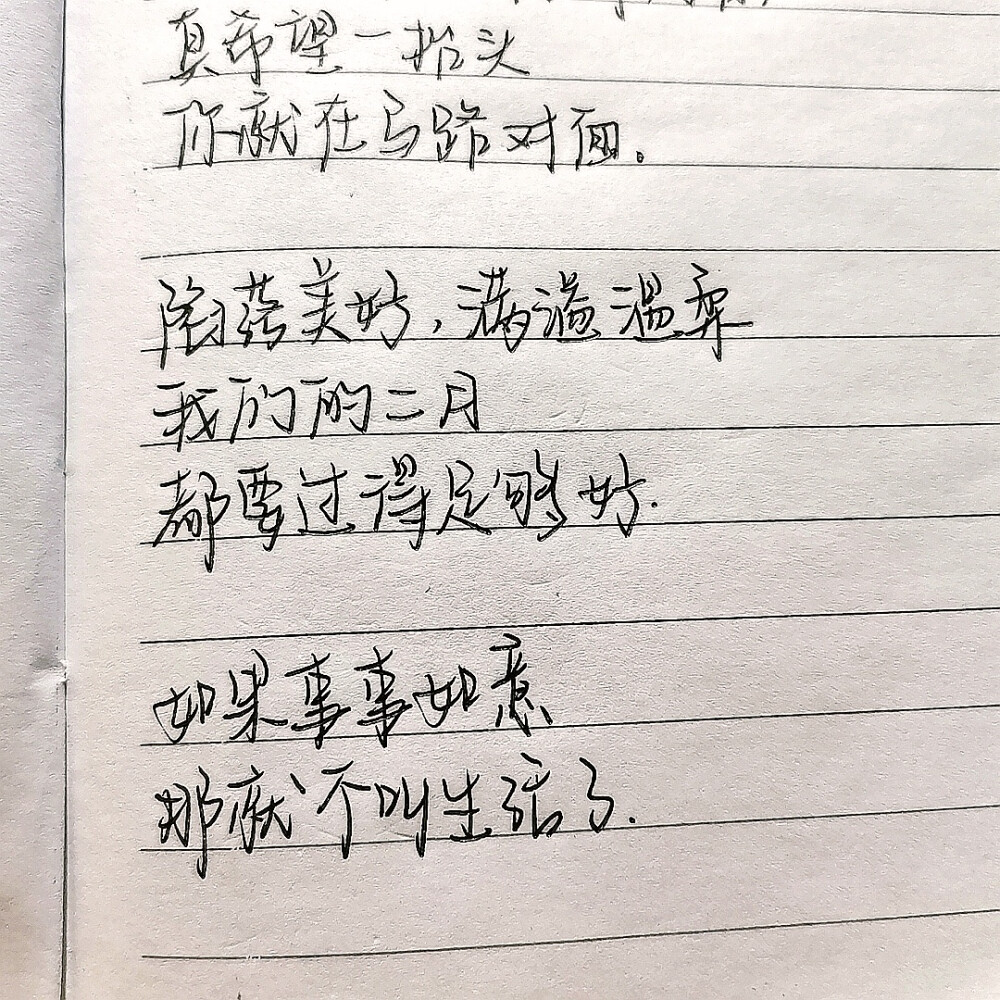 真希望一抬头
你就在马路对面。
隐藏美好,满溢温柔
我们的二月
都要过得足够好.
如果事事如意
那就不叫生活了.